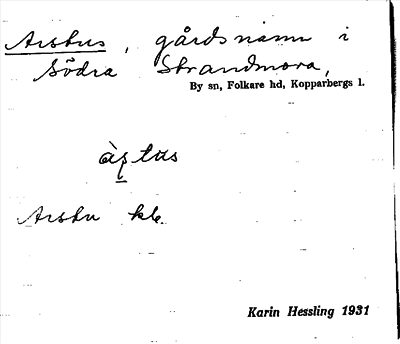 Arstus, gårdsnamn i
Södra Strandmora,
By sn, Folkare hd, Kopparbergs l.
Arstu kb.
Karin Hessling 1931